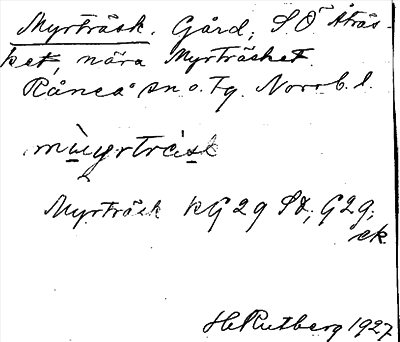 Myrträsk. Gård, SO Åträs-
ket, nära Myrträsket.
Råneå sn o. Tg. Norrb. l.
Myrträsk KG 29 St, G29,
ek.
H Rutberg 1927